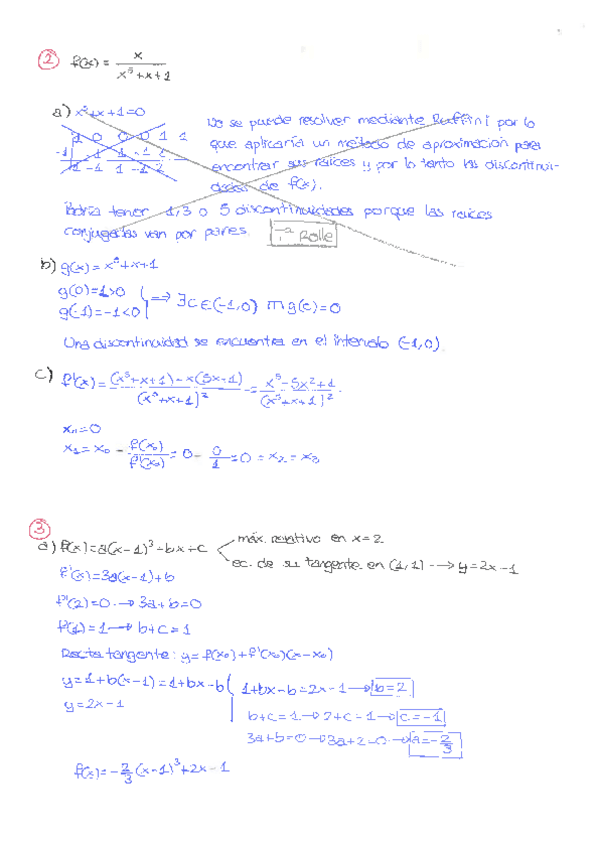 ② f(x) = x / x⁵+x+1
a) x⁵+x+1=0
1 0 0 0 1 1
-1
1 -1 1 -1 2
No se puede resolver mediante Ruffini por lo
que aplicaría un método de aproximación para
encontrar sus raíces y por lo tanto las discontinui-
dades de f(x).
Podría tener 1, 3 o 5 discontinuidades porque las raíces
conjugadas van por pares. Rolle
b) g(x) = x⁵+x+1
g(0)=1>0
g(-1)=-1<0 ⇒ ∃c∈(-1,0) m g(c)=0
Una discontinuidad se encuentra en el intervalo (-1,0)
c) f'(x) = (x⁵+x+1)-x(5x+1) / (x⁵+x+1)² = x⁵-5x²+1 / (x⁵+x+1)²
x₀=0
x₁ = x₀ - f(x₀)/f'(x₀) = 0 - 0/1 = 0 = x₂ = x₃
③
a) f(x)=a(x-1)³+bx+c
máx. relativo en x=2
ec. de su tangente en (1,1) → y=2x-1
f'(x)=3a(x-1)+b
f'(2)=0 → 3a+b=0
f(1)=1 → b+c=1
Recta tangente: y=f(x₀)+f'(x₀)(x-x₀)
y=1+b(x-1)=1+bx-b
y=2x-1
1+bx-b=2x-1 → b=2
b+c=1 → 2+c=1 → c=-1
3a+b=0 → 3a+2=0 → a=-2/3
f(x)=-2/3(x-1)³+2x-1